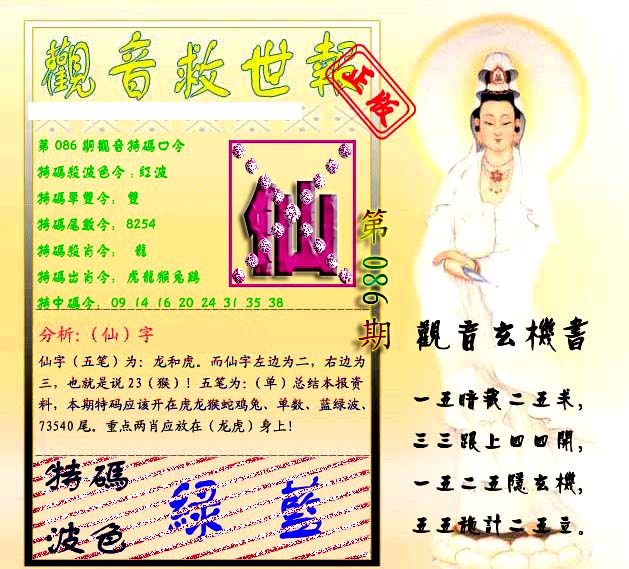 觀音救世報
正版
第 086 期觀音特碼口令
特碼殺波色令：紅波
特碼單雙令： 雙
特碼尾數令： 8254
特碼殺肖令： 龍
特碼出肖令： 虎龍猴兔鷄
特中碼令： 09 14 16 20 24 31 35 38
仙
第086期
分析：（仙）字
仙字（五笔）为：龙和虎。而仙字左边为二，右边为
三，也就是说 23（猴）！五笔为：（单）总结本报资
料，本期特码应该开在虎龙猴蛇鸡兔、单数、蓝绿波、
73540 尾。重点两肖应放在（龙虎）身上！
特碼
波色
綠 藍
觀音玄機書
一五暗藏二五来，
三三跟上四四開，
一五二五隱玄機，
五五施計二五立。